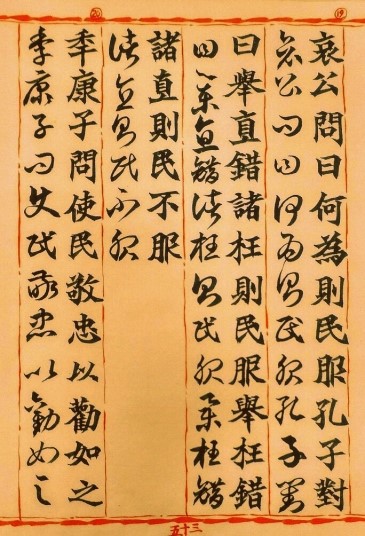 ⑲
哀公問曰何為則民服孔子對
哀公問曰何為則民服孔子對
曰舉直錯諸枉則民服舉枉錯
曰舉直錯諸枉則民服舉枉錯
諸直則民不服
諸直則民不服
⑳
季康子問使民敬忠以勸如之
季康子問使民敬忠以勸如之
三十五